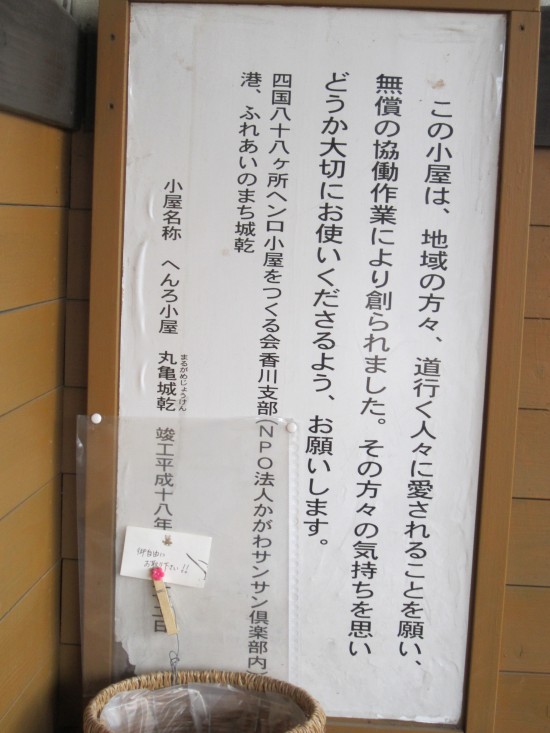 この小屋は、地域の方々、道行く人々に愛されることを願い、
無償の協働作業により創られました。その方々の気持ちを思い
どうか大切にお使いくださるよう、お願いします。
四国八十八ヶ所ヘンロ小屋をつくる会香川支部(NPO法人かがわサンサン倶楽部内)
港、ふれあいのまち城乾
小屋名称　へんろ小屋　丸亀城乾　竣工平成十八年
まるがめじょうけん
お取り下さい!!